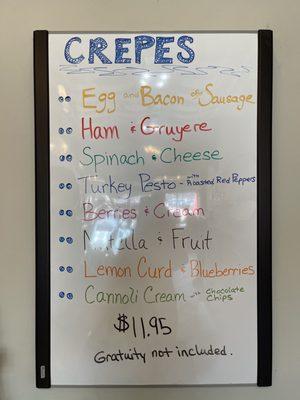 CREPES
Egg and Bacon or Sausage
Ham & Gruyere
Spinach & Cheese
Turkey Pesto - with Roasted Red Peppers
Berries & Cream
Nutella & Fruit
Lemon Curd & Blueberries
Cannoli Cream with Chocolate Chips
$11.95
Gratuity not included.